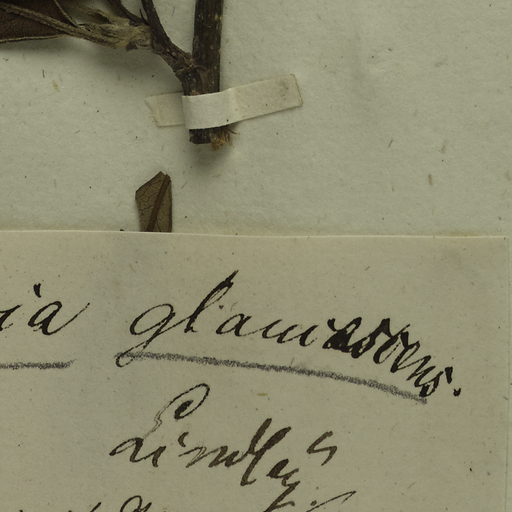 ia glaucescens.
Lindley